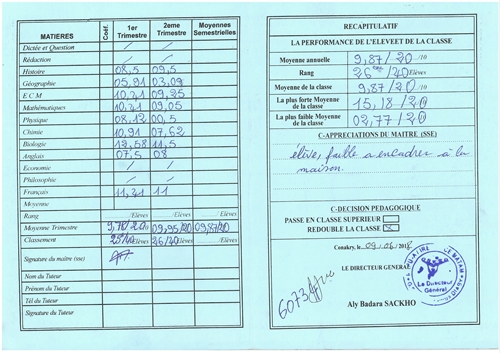 MATIÈRES Coef. 1er Trimestre 2eme Trimestre Moyennes Semestrielles
Dictée et Question / /
Rédaction / /
Histoire 08,5 09,5
Géographie 05,91 03,09
E C M 10,41 09,25
Mathématiques 10,41 09,05
Physique 08,12 00,5
Chimie 10,91 07,62
Biologie 12,58 11,5
Anglais 07,5 08
Economie / /
Philosophie / /
Français 11,21 11
Moyenne
Rang /Elèves /Elèves /Elèves
Moyenne Trimestre 9,78/20 09,95/20 09,87/20
Classement 25/40 Elèves 26/40 Elèves /Elèves
Signature du maître (sse)
Nom du Tuteur
Prénom du Tuteur
Tél du Tuteur
Signature du Tuteur
RECAPITULATIF
LA PERFORMANCE DE L'ELEVE ET DE LA CLASSE
Moyenne annuelle 9,87/20 /10
Rang 26ème/40 Elèves
Moyenne de la classe 9,87/20 /10
La plus forte Moyenne de la classe 15,18/20
La plus faible Moyenne de la classe 02,77/20
C-APPRECIATIONS DU MAITRE (SSE)
élève faible a encadrer à la
maison.
C-DECISION PEDAGOGIQUE
PASSE EN CLASSE SUPERIEUR
REDOUBLE LA CLASSE X
Conakry, le 09.06.2018
LE DIRECTEUR GENERAL
Le Directeur
Général
Aly Badara SACKHO